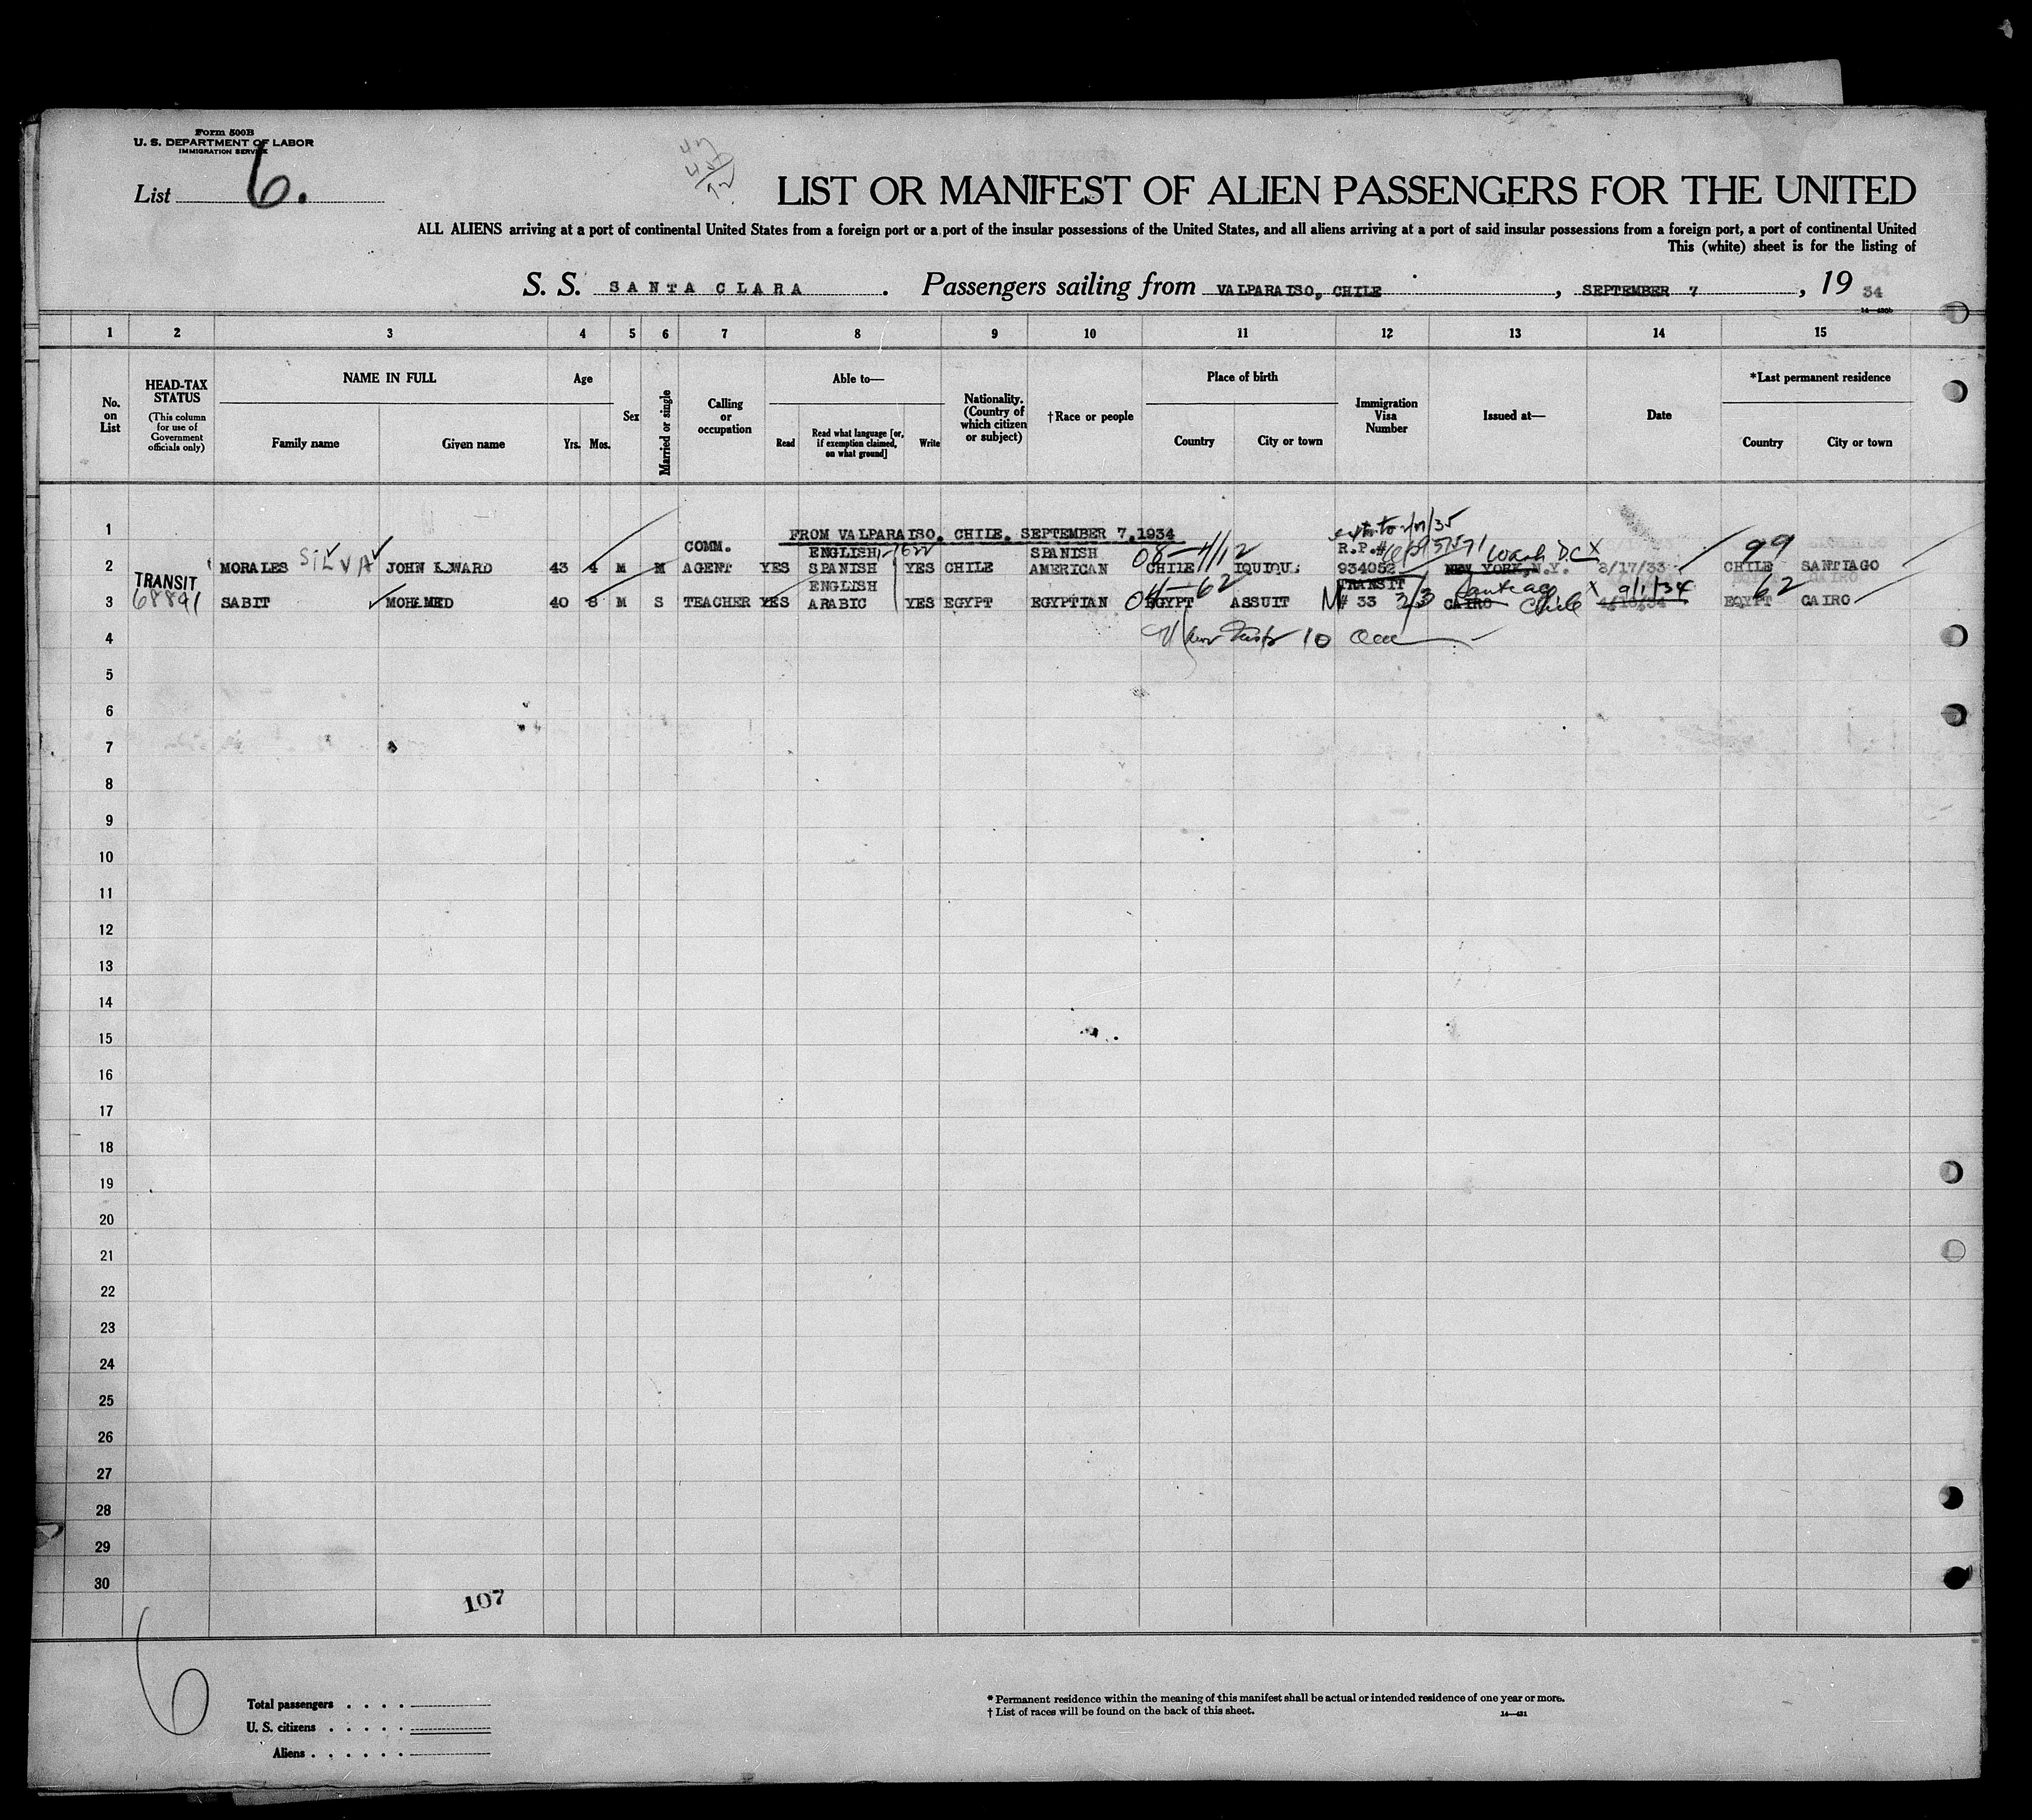 Form 500B
U. S. DEPARTMENT OF LABOR
IMMIGRATION SERVICE
List 6.
LIST OR MANIFEST OF ALIEN PASSENGERS FOR THE UNITED
ALL ALIENS arriving at a port of continental United States from a foreign port or a port of the insular possessions of the United States, and all aliens arriving at a port of said insular possessions from a foreign port, a port of continental United
This (white) sheet is for the listing of
S. S. SANTA CLARA . Passengers sailing from VALPARAISO, CHILE , SEPTEMBER 7 , 19 34
1 2 3 4 5 6 7 8 9 10 11 12 13 14 15
No. on List
HEAD-TAX STATUS
(This column for use of Government officials only)
NAME IN FULL
Family name Given name
Age
Yrs. Mos.
Sex
Married or single
Calling or occupation
Able to—
Read
Read what language [or, if exemption claimed, on what ground]
Write
Nationality. (Country of which citizen or subject)
†Race or people
Place of birth
Country City or town
Immigration Visa Number
Issued at—
Date
*Last permanent residence
Country City or town
1 FROM VALPARAISO, CHILE, SEPTEMBER 7, 1934
COMM. ENGLISH SPANISH R.P.# Wash D.C. 99
2 MORALES SILVA JOHN EDWARD 43 4 M M AGENT YES SPANISH YES CHILE AMERICAN CHILE IQUIQUE 934052 NEW YORK, N.Y. 8/17/33 CHILE SANTIAGO
TRANSIT ENGLISH TRANSIT Santiago 9/1/34 62
3 68891 SABIT MOHAMED 40 8 M S TEACHER YES ARABIC YES EGYPT EGYPTIAN EGYPT ASSUIT # 33 CAIRO Chile EGYPT CAIRO
4
5
6
7
8
9
10
11
12
13
14
15
16
17
18
19
20
21
22
23
24
25
26
27
28
29
30
107
6
Total passengers . . . .
U. S. citizens . . . . .
Aliens . . . . . .
* Permanent residence within the meaning of this manifest shall be actual or intended residence of one year or more.
† List of races will be found on the back of this sheet.
14—431